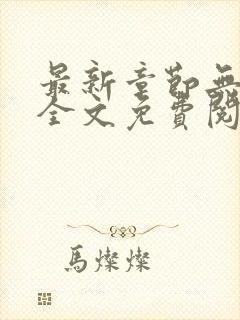 最新章節無
全文免費閱
馬燦燦